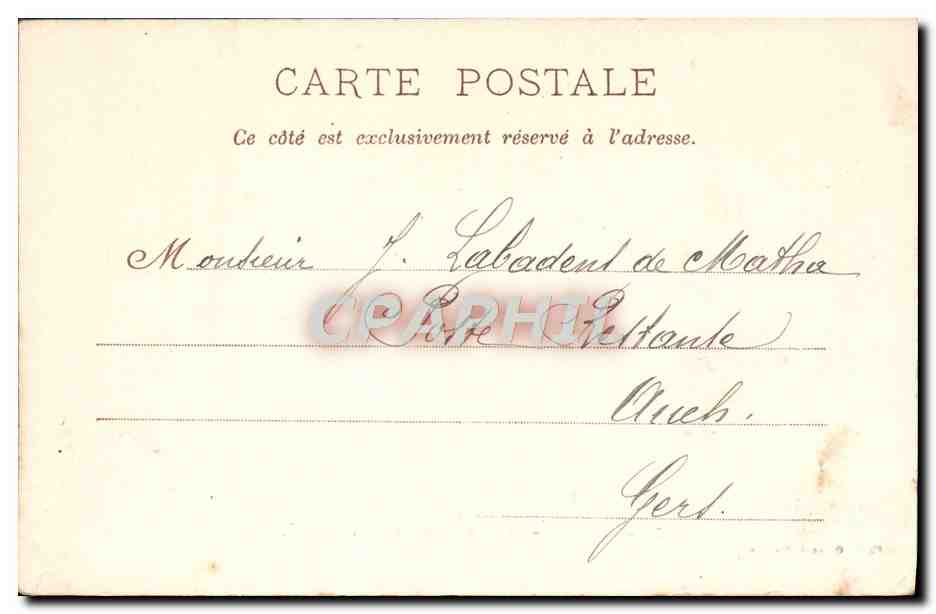 CARTE POSTALE
Ce côté est exclusivement réservé à l'adresse.
Monsieur J. Labadent de Matha
CPAPHIL
Poste Restante
Auch.
Gers.